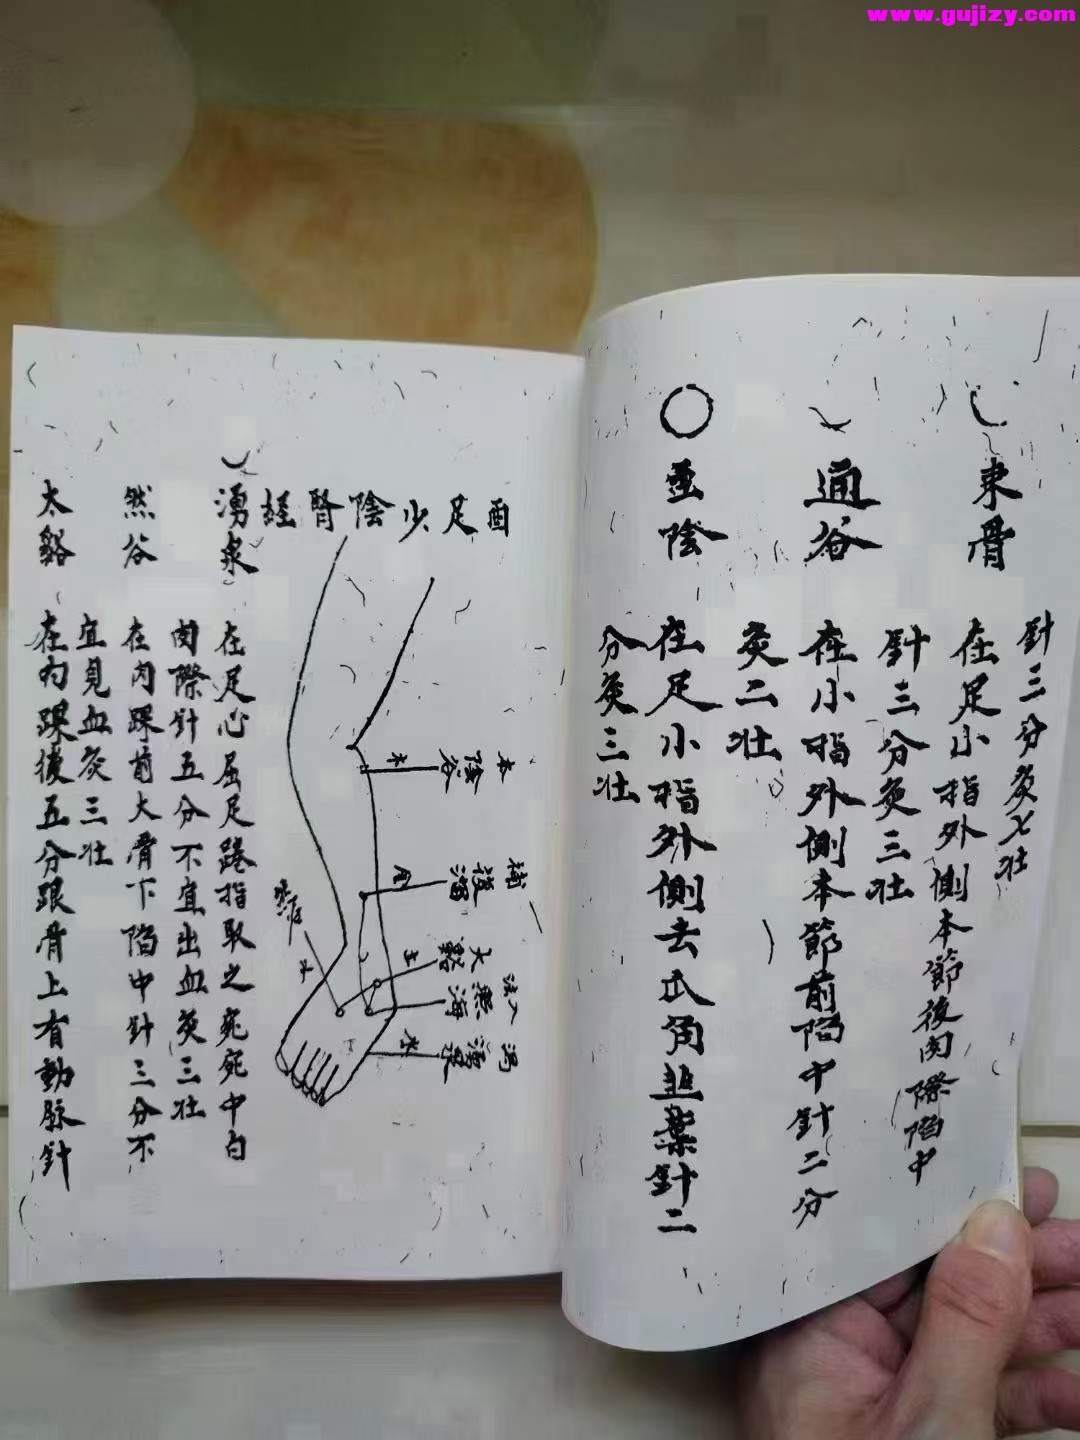 www.gujizy.com
針三分灸七壮
束骨
在足小指外側本節後肉際陷中
針三分灸三壮
通谷
在小指外側本節前陷中針二分
灸二壮
至陰
在足小指外側去爪角韭葉針二
分灸三壮
酉足少陰腎經
本 陰谷 水
補 復溜 金
大谿 土
注入 照海
瀉 湧泉 木
火
湧泉
在足心屈足踡指取之宛宛中白
肉際針五分不宜出血灸三壮
然谷
在内踝前大骨下陷中針三分不
宜見血灸三壮
太谿
在内踝後五分跟骨上有動脉針